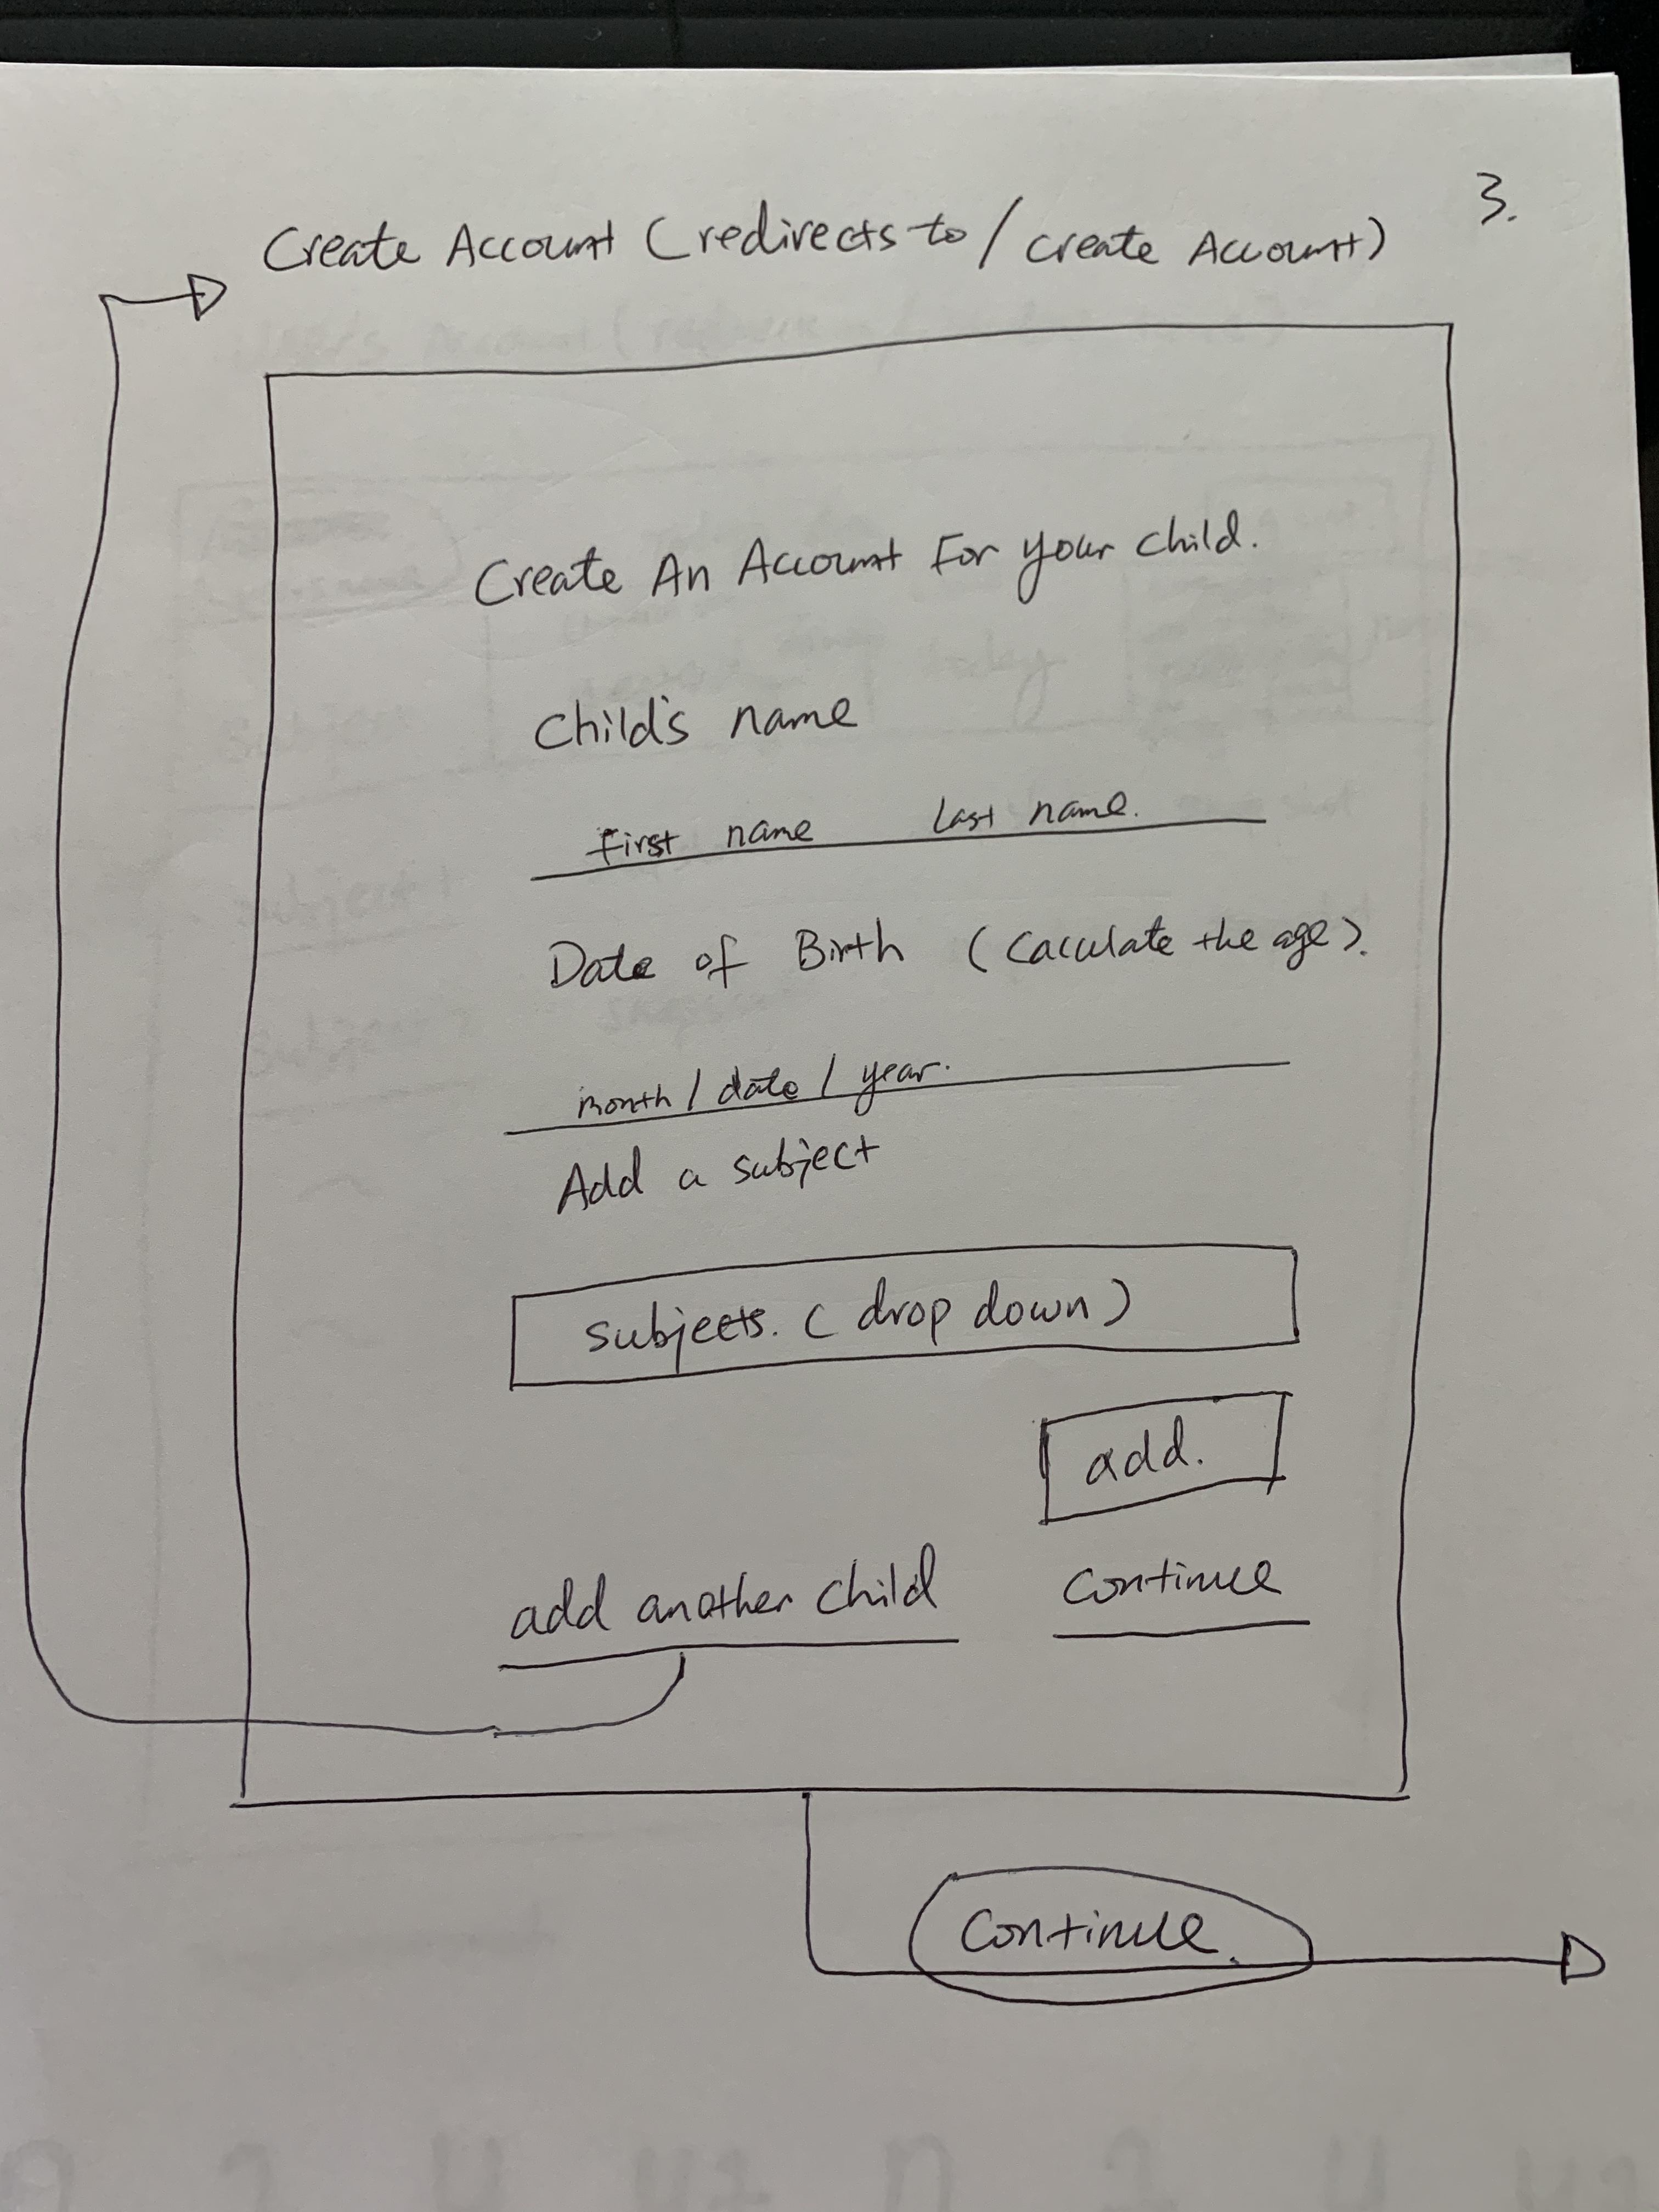 3.
Create Account (redirects to / create Account)
Create An Account For your child.
Child's name
First name Last name.
Date of Birth (Caculate the age).
month / date / year.
Add a subject
subjects. (drop down)
add.
add another child continue
Continue.